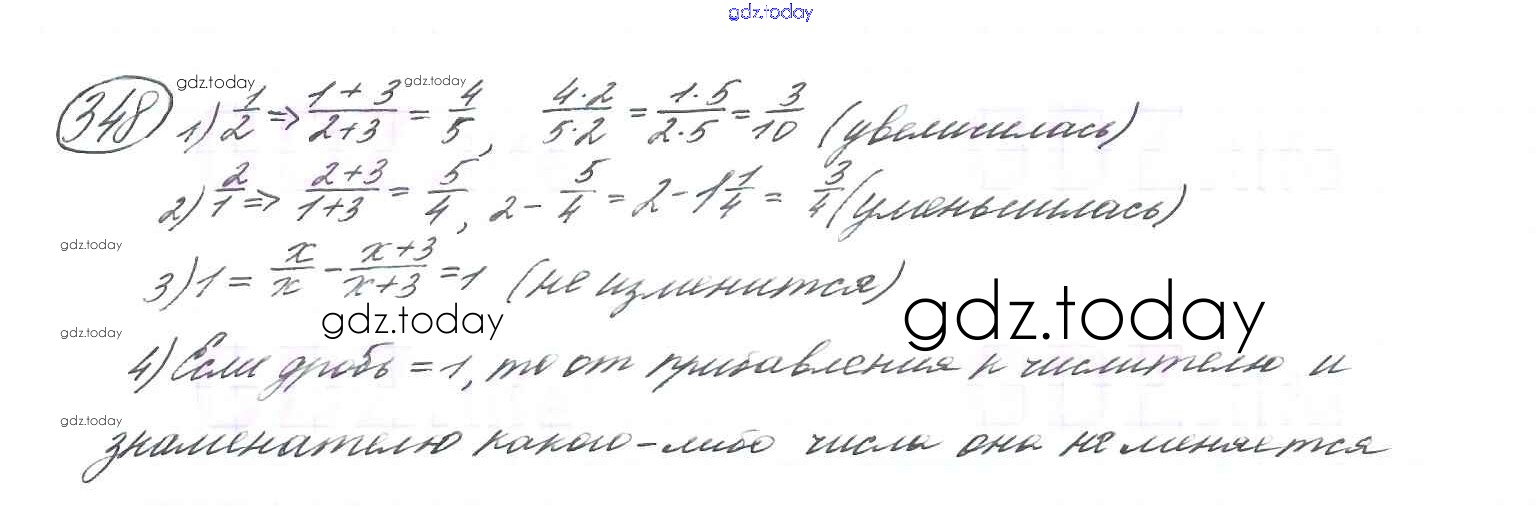 gdz.today
348 gdz.today gdz.today
1) 1/2 => (1+3)/(2+3) = 4/5, (4·2)/(5·2) = (1·5)/(2·5) = 3/10 (увеличилась)
2) 2/1 => (2+3)/(1+3) = 5/4, 2 - 5/4 = 2 - 1 1/4 = 3/4 (уменьшилась)
gdz.today
3) 1 = x/x - (x+3)/(x+3) = 1 (не изменится)
gdz.today gdz.today gdz.today
4) Если дробь = 1, то от прибавления к числителю и
gdz.today
знаменателю какого-либо числа она не меняется